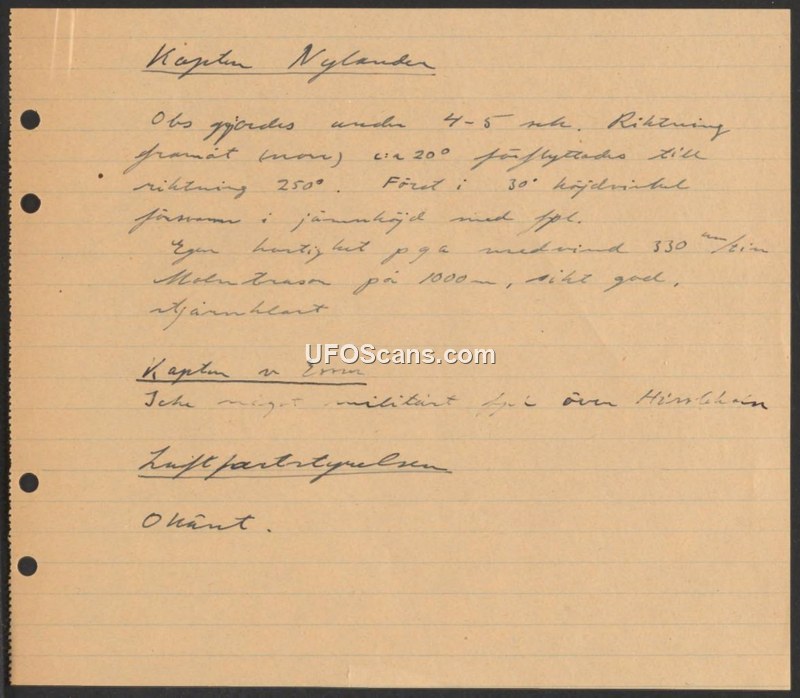 Kapten Nylander
Obs gjordes under 4-5 sek. Riktning
framåt (norr) c:a 20° förflyttades till
riktning 250°. Först i 30° höjdvinkel
försvann i jämnhöjd med fpl.
Egen hastighet pga medvind 330 km/tim
Molntrasor på 1000 m, sikt god,
stjärnklart
UFOScans.com
Kapten v
Icke något militärt fpl över
Luftfartstyrelsen
Okänt.